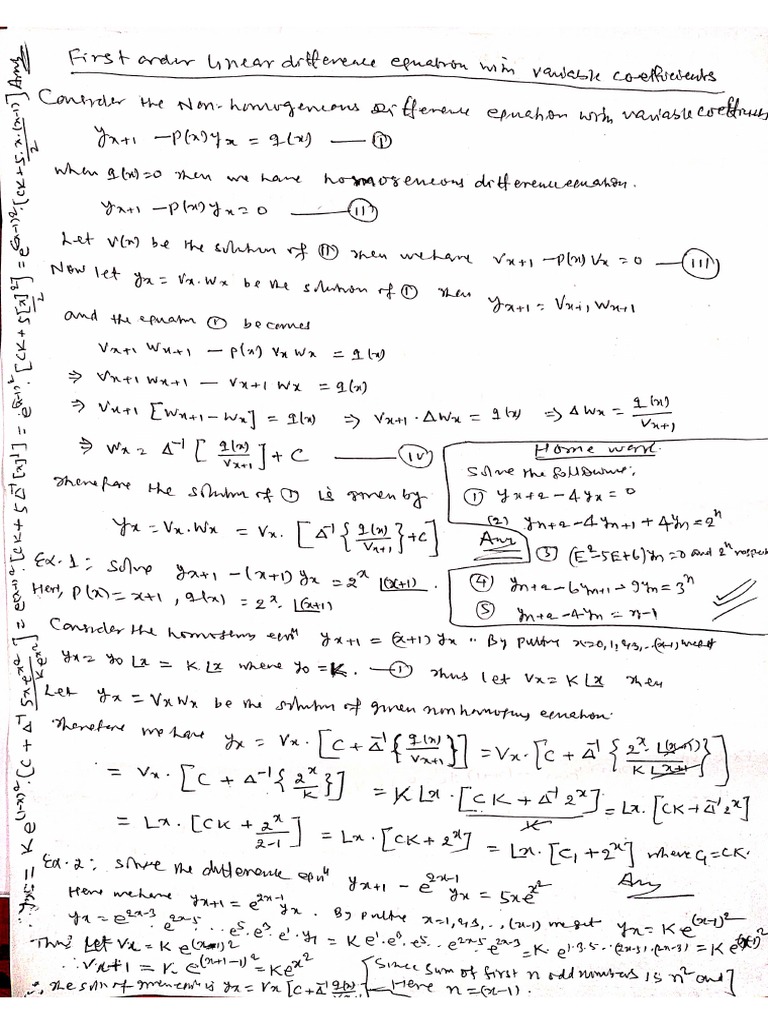 First order linear difference equation with variable coefficients
Consider the Non-homogeneous Difference equation with variable coefficients
y_{x+1} - p(x) y_x = q(x) —— (I)
when q(x)=0 then we have homogeneous difference equation.
y_{x+1} - p(x) y_x = 0 —— (II)
Let v(x) be the solution of (II) then we have v_{x+1} - p(x) v_x = 0 —— (III)
Now let y_x = v_x . w_x be the solution of (I) then y_{x+1} = v_{x+1} w_{x+1}
and the equation (I) becomes
v_{x+1} w_{x+1} - p(x) v_x w_x = q(x)
⇒ v_{x+1} w_{x+1} - v_{x+1} w_x = q(x)
⇒ v_{x+1} [w_{x+1} - w_x] = q(x) ⇒ v_{x+1} . Δw_x = q(x) ⇒ Δw_x = q(x)/v_{x+1}
⇒ w_x = Δ^{-1} [ q(x)/v_{x+1} ] + C —— (IV)
Therefore the solution of (I) is given by
y_x = v_x . w_x = v_x . [Δ^{-1} { q(x)/v_{x+1} } + C]
Home work.
Solve the following:
(1) y_{x+2} - 4y_x = 0
(2) y_{n+2} - 4y_{n+1} + 4y_n = 2^n
Ans (3) (E^2 - 5E + 6) y_n = 0 and 2^n
(4) y_{n+2} - 6y_{n+1} - 9y_n = 3^n
(5) y_{n+2} - 4y_n = n-1
Ex. 1: Solve y_{x+1} - (x+1) y_x = 2^x ⌊(x+1).
Here, p(x) = x+1, q(x) = 2^x. ⌊(x+1)
Consider the eqn y_{x+1} = (x+1) y_x .. By putting x=0,1,2,3,..(x-1) we get
y_x = y_0 ⌊x = K ⌊x where y_0 = K. —(I) Thus let v_x = K ⌊x then
Let y_x = v_x w_x be the solution of given equation.
Therefore we have y_x = v_x . [C + Δ^{-1} { q(x)/v_{x+1} }] = v_x . [C + Δ^{-1} { 2^x ⌊(x+1) / K ⌊x+1 }]
= v_x . [C + Δ^{-1} { 2^x/K }] = K ⌊x . [CK + Δ^{-1} 2^x]/K = ⌊x . [CK + Δ^{-1} 2^x]
= ⌊x . [CK + 2^x/(2-1)] = ⌊x . [CK + 2^x] = ⌊x . [C_1 + 2^x] where C_1 = CK.
Ans
Ex. 2: Solve the difference eqn y_{x+1} - e^{2x-1} y_x = 5x e^{x^2}
Here we have y_{x+1} = e^{2x-1} y_x . By putting x=1,2,3,..,(x-1) we get y_x = K e^{(x-1)^2}
y_x = e^{2x-3} . e^{2x-5} ... e^5 . e^3 . e^1 . y_1 = K e^1 . e^3 . e^5 .. e^{2x-5} . e^{2x-3} = K . e^{1.3.5...(2x-5).(2x-3)} = K e^{(x-1)^2}
Thus Let v_x = K e^{(x-1)^2}
∴ v_{x+1} = K e^{(x+1-1)^2} = K e^{x^2} [Since sum of first n odd numbers is n^2 and
∴ The soln of is y_x = v_x [C + Δ^{-1} q(x)/ Here n = (x-1).]
∴ y_x = K e^{(1-x)^2} . [C + Δ^{-1} 5x e^{x^2} / K e^{x^2}] = e^{(x-1)^2} . [CK + 5 Δ^{-1} [x]^1] = e^{(x-1)^2} . [CK + 5 [x]^2 / 2] = e^{(x-1)^2} . [CK + 5.x.(x-1) / 2] Ans